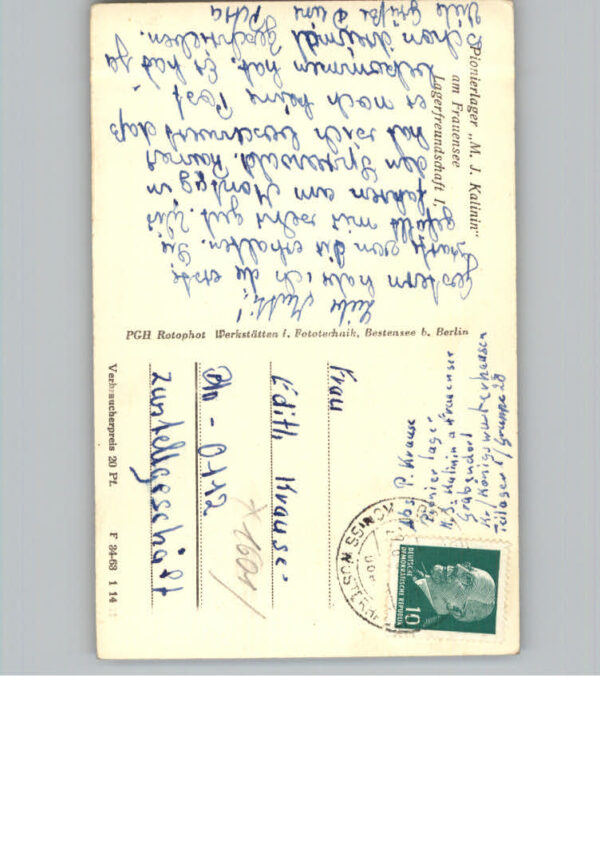 Pionierlager „M. J. Kalinin"
am Frauensee
Lagerfreundschaft I,
Liebe Mutti!
Gestern habe ich die erste
Karte von dir erhalten. Sie
gefällt mir sehr gut. Wir
fahren am Montag in
den Spreewald. Rainer
hat sich beschwert daß
er noch keine Post
bekommen hat. Er hat ja
schon dreimal geschrieben.
Viele Grüße Deine
Petra
PGH Rotophot Werkstätten f. Fototechnik, Bestensee b. Berlin
Abs. P. Krause
Pionierlager
M.J. Kalinin a Frauensee
Gräbendorf
Kr/Königswusterhausen
Teillager I/Gruppe 28
DEUTSCHE
DEMOKRATISCHE REPUBLIK
10
Frau
Edith Krause
Zustellgeschäft
Verbraucherpreis 20 Pf.
F 34-63 1 14